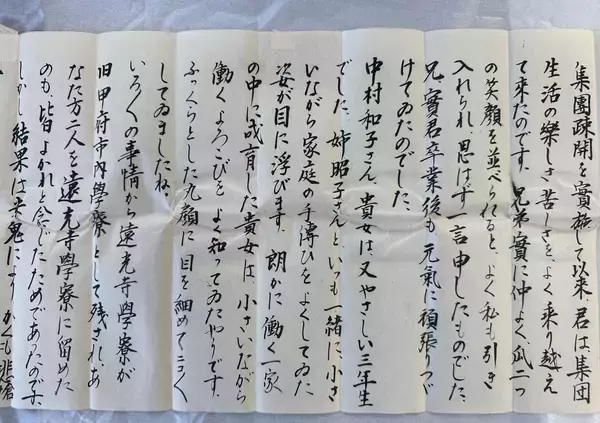 集團疎開を實施して以來、君は集団
生活の樂しさ苦しさを、よく乘り越え
て来たのです。兄弟實に仲よく、瓜二つ
の笑顔を並べられると、よく私も引き
入れられ、思はず一言申したものでした。
兄、實君卒業後も元氣に頑張りつゞ
けてゐたのでした。
中村和子さん、貴女は又やさしい三年生
でした。姉昭子さんといつも一緒に、小さ
いながら家庭の手傳ひをよくしてゐた
姿が目に浮びます。朗かに働く一家
の中に成育した貴女は、小さいながら
働くよろこびをよく知つてゐたやうです。
ふつくらとした丸顔に目を細めてニコ〱
してゐましたね。
いろ〱の事情から遠光寺學寮が
旧甲府市内學寮として残され、あ
なた方二人を遠光寺學寮に留めた
のも、皆よかれと念じたためであつたのです。
しかし結果は米鬼により、かくも悲惨